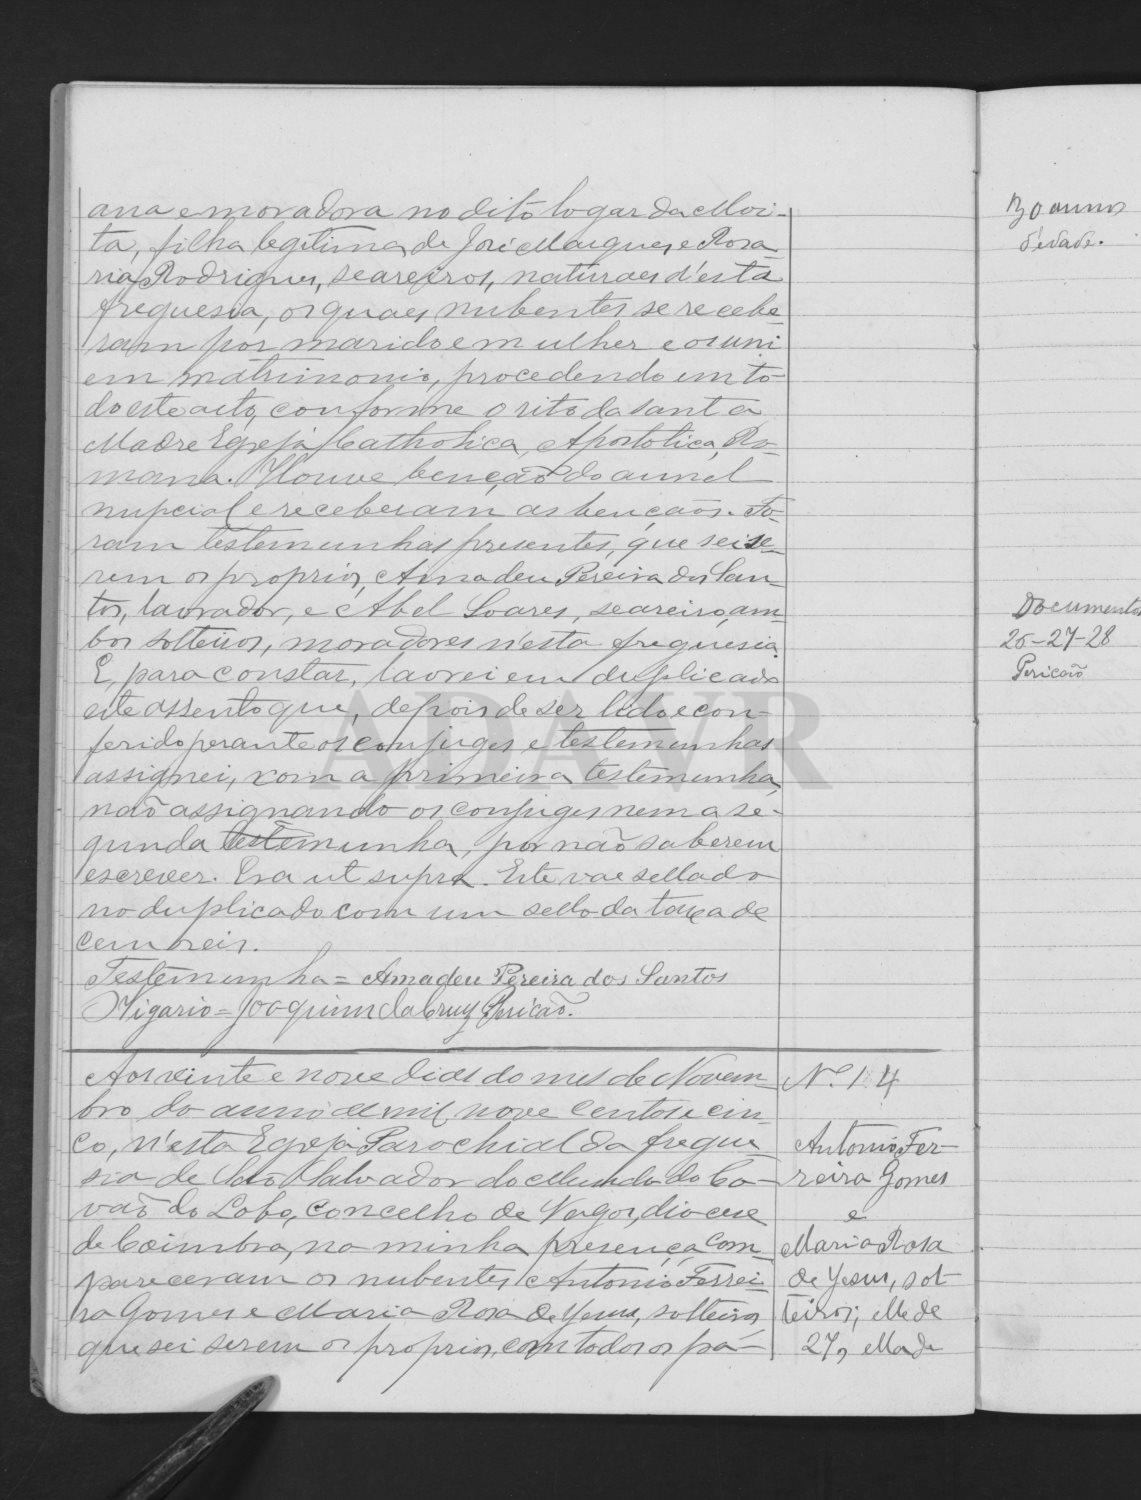 ana e moradora no dito logar da Moi-
ta, filha legitima de José Marques e Rosa-
ria Rodrigues, seareiros, naturaes d'esta
freguesia, os quaes nubentes se recebe-
ram por marido e mulher e os uni
em matrimonio, procedendo em to-
do este acto conforme o rito da Santa
Madre Egreja Catholica, Apostolica, Ro-
mana. Houve benção do annel
nupcial e receberam as bençãos. Fo-
ram testemunhas presentes, que sei se-
rem os proprios, Amadeu Pereira dos San-
tos, lavrador, e Abel Soares, seareiro, am-
bos solteiros, moradores n'esta freguesia.
E, para constar, lavrei em duplicado
este assento que, depois de ser lido e con-
ferido perante os conjuges e testemunhas
assignei, com a primeira testemunha,
não assignando os conjuges nem a se-
gunda testemunha, por não saberem
escrever. Era ut supra. Este vae sellado
no duplicado com um sello da taxa de
cem reis.
Testemunha = Amadeu Pereira dos Santos
O Vigario = Joaquim da Cruz Pericão.
Aos vinte e nove dias do mes de Novem-
bro do anno de mil nove centos e cin-
co, n'esta Egreja Parochial da fregue-
sia de São Salvador do Mundo do Co-
vão do Lobo, concelho de Vagos, diocese
de Coimbra, na minha presença com-
pareceram os nubentes Antonio Ferrei-
ra Gomes e Maria Rosa de Jesus, solteiros,
que sei serem os proprios, com todos os pa-
Nº 14
Antonio Fer-
reira Gomes
e
Maria Rosa
de Jesus, sol-
teiros; elle de
27, ella de
30 annos
d'edade.
Documentos
26-27-28
Pericão
ADAVR